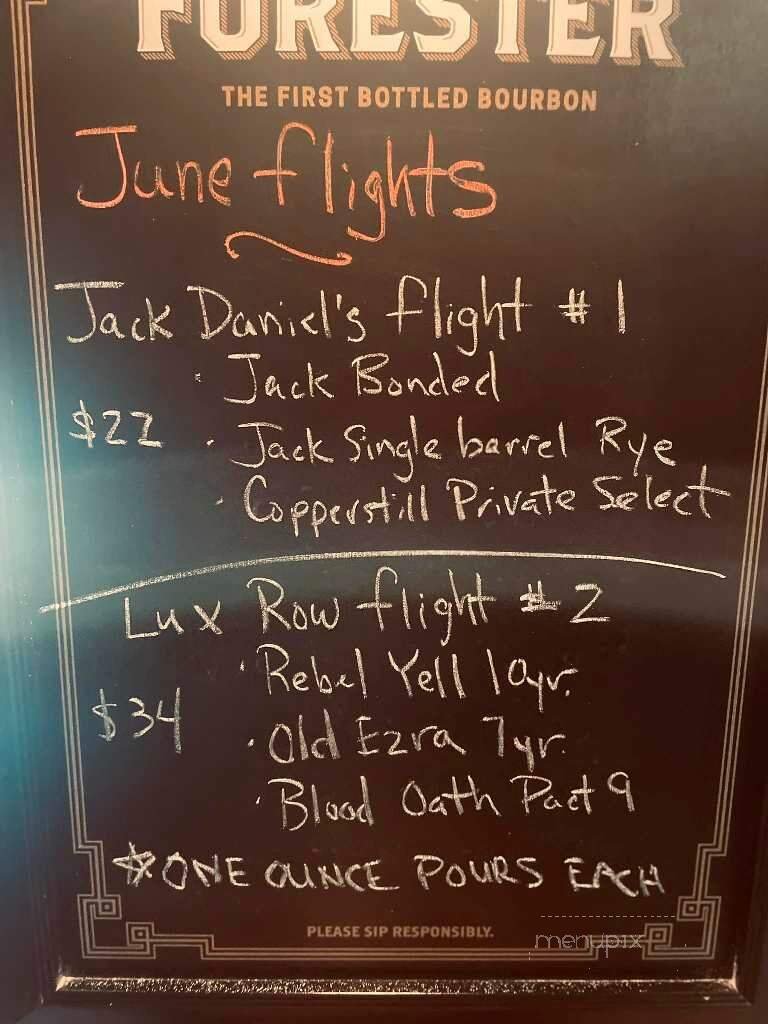 FORESTER
THE FIRST BOTTLED BOURBON
June flights
Jack Daniel's flight #1
· Jack Bonded
$22 · Jack Single barrel Rye
· Copperstill Private Select
Lux Row flight #2
· Rebel Yell 10yr.
$34 · Old Ezra 7yr.
· Blood Oath Pact 9
*ONE OUNCE POURS EACH
PLEASE SIP RESPONSIBLY.
menupix